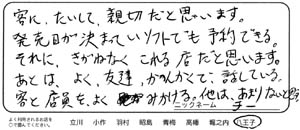 客に、たいして、親切だと思います。
発売日が決まっていソフトでも予約できる。
それに、きがねなくこれる店だと思います。
あとは、よく、友達、かんかくで、話している。
客と店員を、よくみかける。他は、あまりないと思う
ニックネーム チー
よく利用されるお店を
○で囲んでください。
立川 小作 羽村 昭島 青梅 高幡 堀之内 八王子